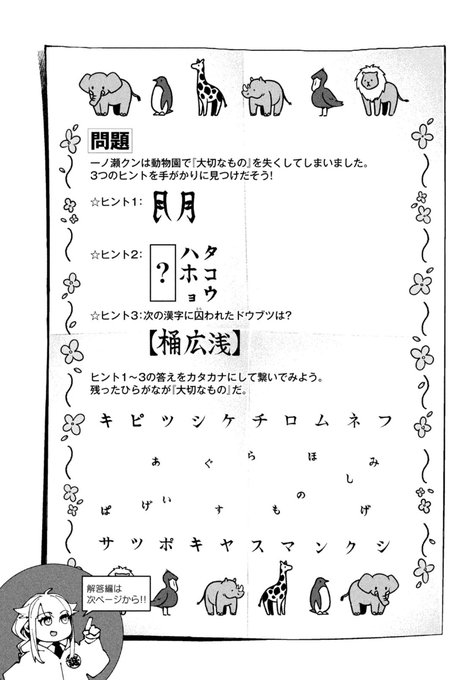 問題
一ノ瀬クンは動物園で『大切なもの』を失くしてしまいました。
3つのヒントを手がかりに見つけだそう!
☆ヒント1:
月月
☆ヒント2:
タコウ
ハホョ
?
☆ヒント3:次の漢字に囚われたドウブツは?
【桶広浅】
ヒント1〜3の答えをカタカナにして繋いでみよう。
残ったひらがなが『大切なもの』だ。
キ ピ ツ シ ケ チ ロ ム ネ フ
あ ぐ ら ほ み
し
ぱ げ い す も の げ
サ ツ ポ キ ヤ ス マ ン ク シ
解答編は
次ページから!!